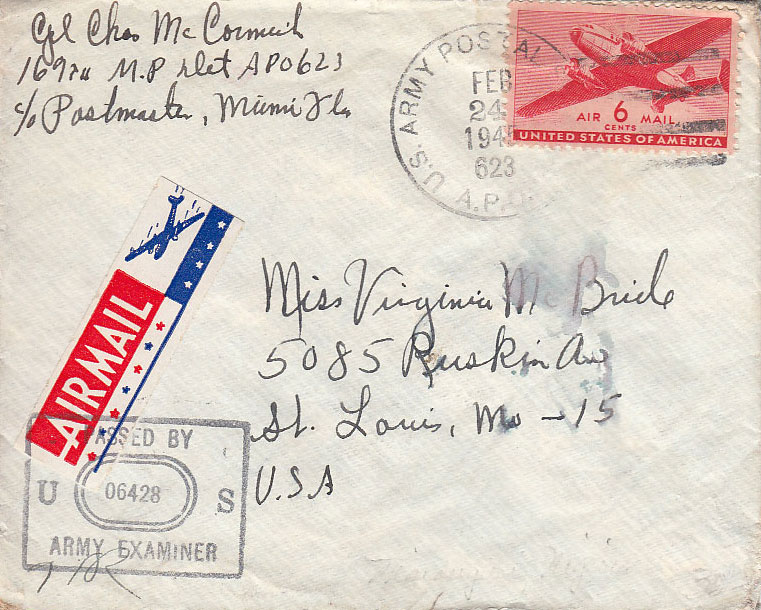 Cpl Chas McCormick
169th M.P Det APO 623
c/o Postmaster, Miami Fla
U.S. ARMY POSTAL
FEB
24
194
623
A.P.O.
AIR 6 MAIL
CENTS
UNITED STATES OF AMERICA
AIRMAIL
Miss Virginia McBride
5085 Ruskin Ave
St. Louis, Mo - 15
U.S.A
PASSED BY
U 06428 S
ARMY EXAMINER